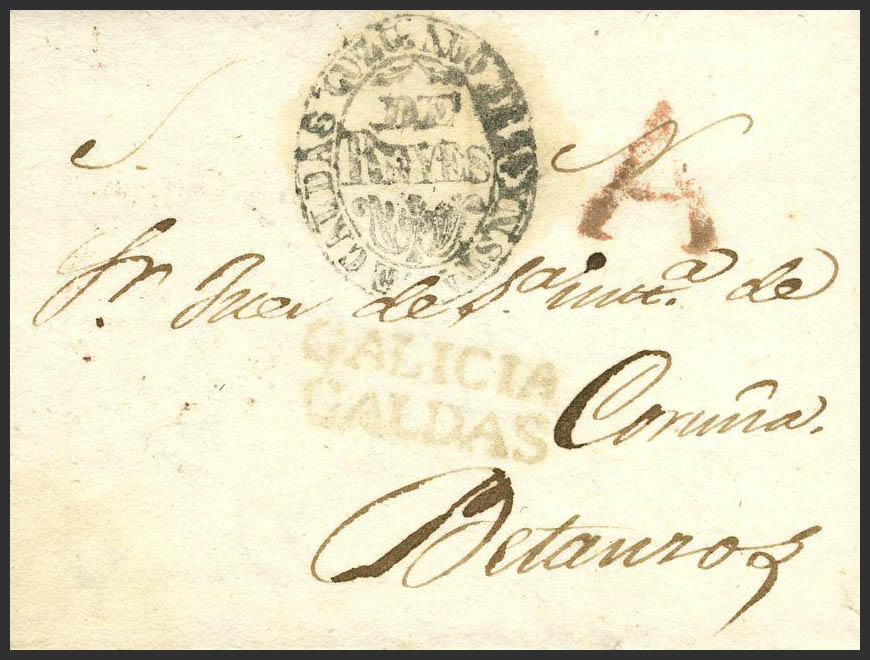 CALDAS JUZGADO DE 1ª INSTª
DE
REYES
S. N.
A
Sr. Juez de 1.ª inst.ª de
GALICIA
CALDAS
Coruña.
Betanzos